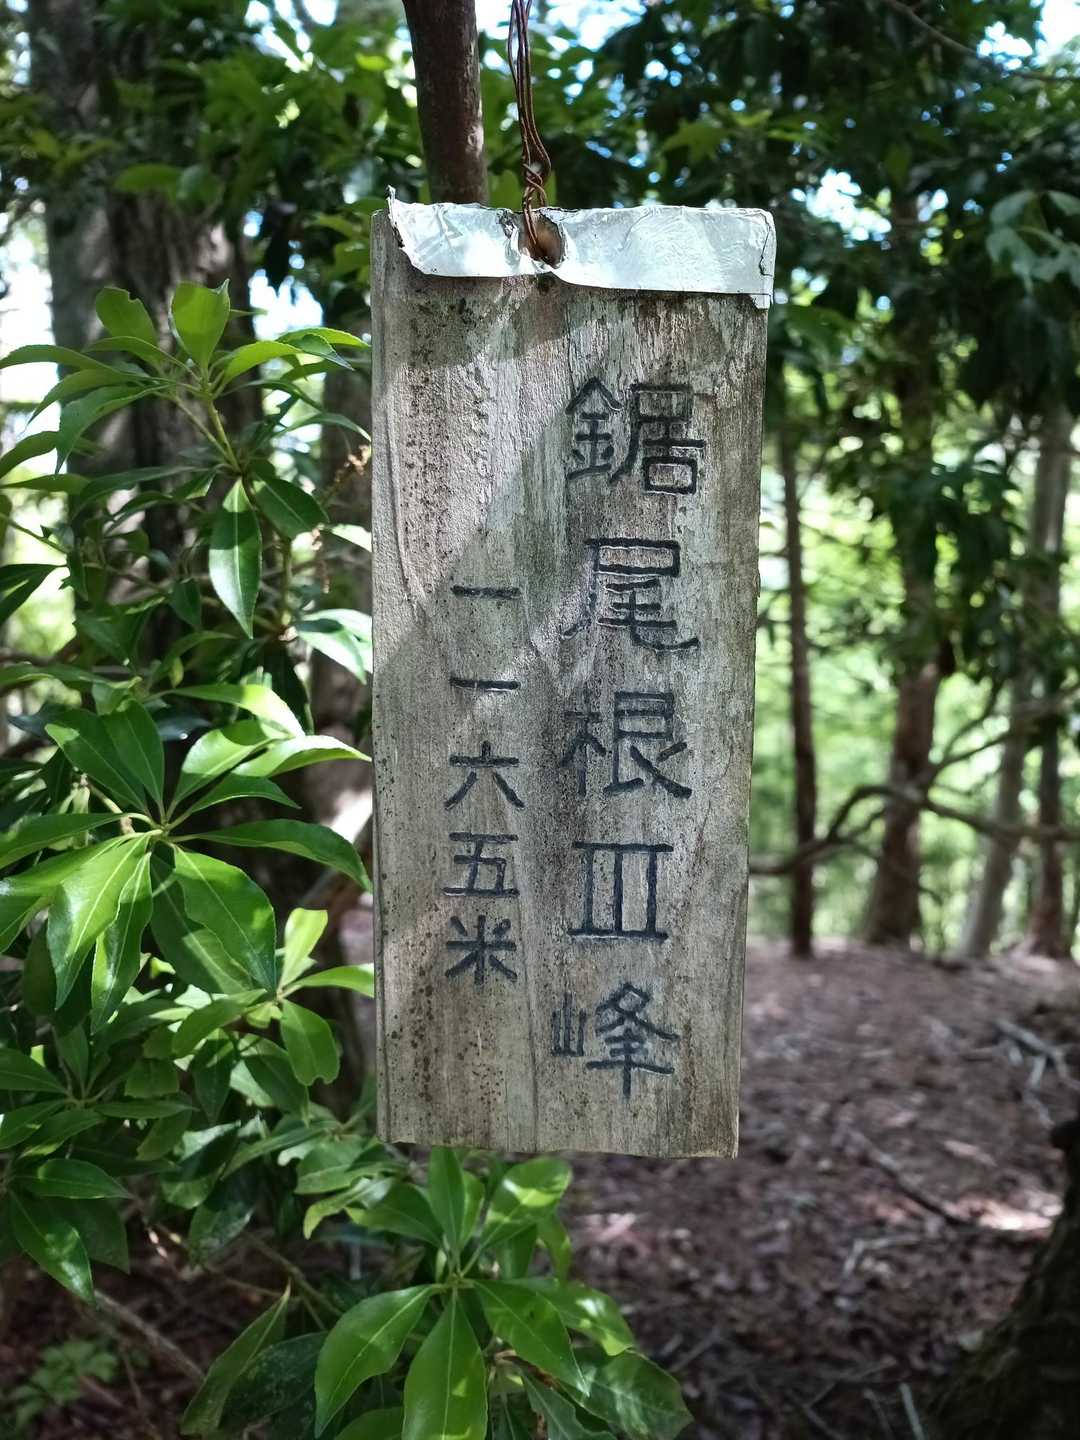 鋸尾根Ⅲ峰
一一六五米